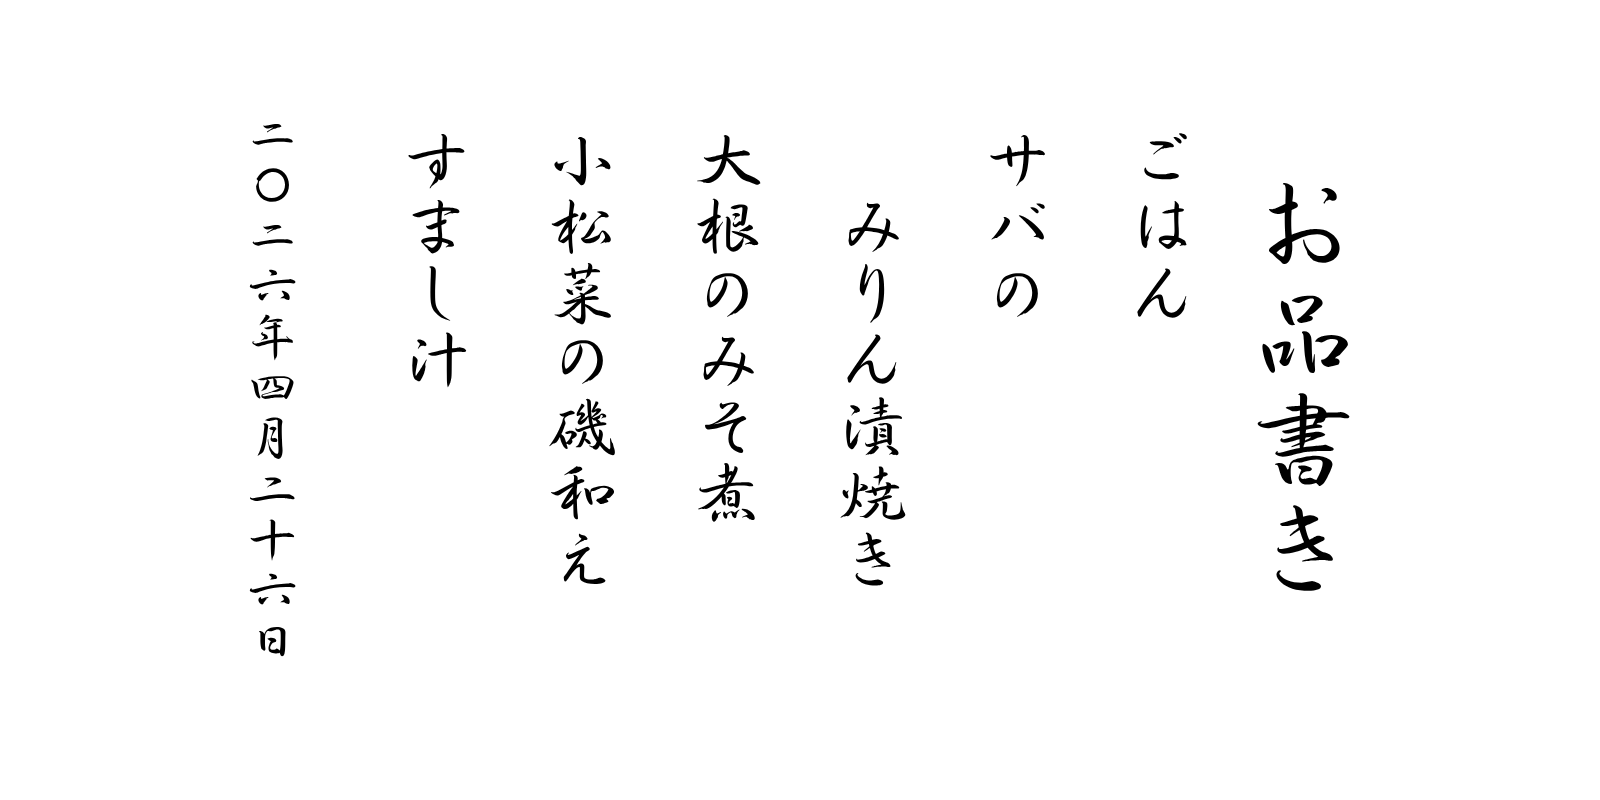 お品書き
ごはん
サバの
みりん漬焼き
大根のみそ煮
小松菜の磯和え
すまし汁
二〇二六年四月二十六日